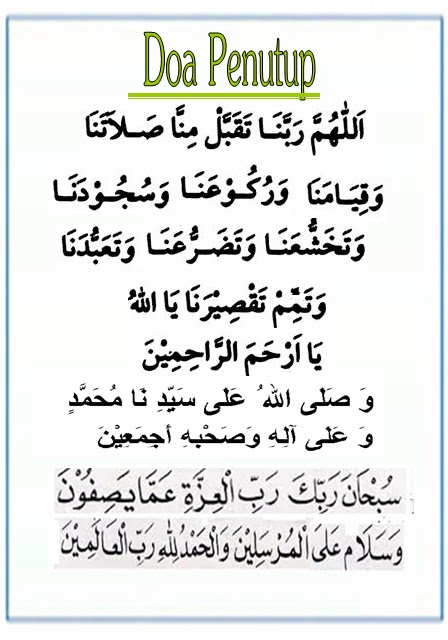 Doa Penutup
اَللّٰهُمَّ رَبَّنَا تَقَبَّلْ مِنَّا صَلاَتَنَا
وَقِيَامَنَا وَرُكُوْعَنَا وَسُجُوْدَنَا
وَتَخَشُّعَنَا وَتَضَرُّعَنَا وَتَعَبُّدَنَا
وَتَمِّمْ تَقْصِيْرَنَا يَا اللهُ
يَا اَرْحَمَ الرَّاحِمِيْنَ
وَ صَلَى اللهُ عَلَى سَيِّدِ نَا مُحَمَّدٍ
وَ عَلَى آلِهِ وَصَحْبِهِ أجمَعِيْنَ
سُبْحَانَ رَبِّكَ رَبِّ الْعِزَّةِ عَمَّا يَصِفُوْنَ
وَسَلَام عَلَى الْمُرْسَلِيْنَ وَالْحَمْدُ لِلّٰهِ رَبِّ الْعَالَمِيْنَ